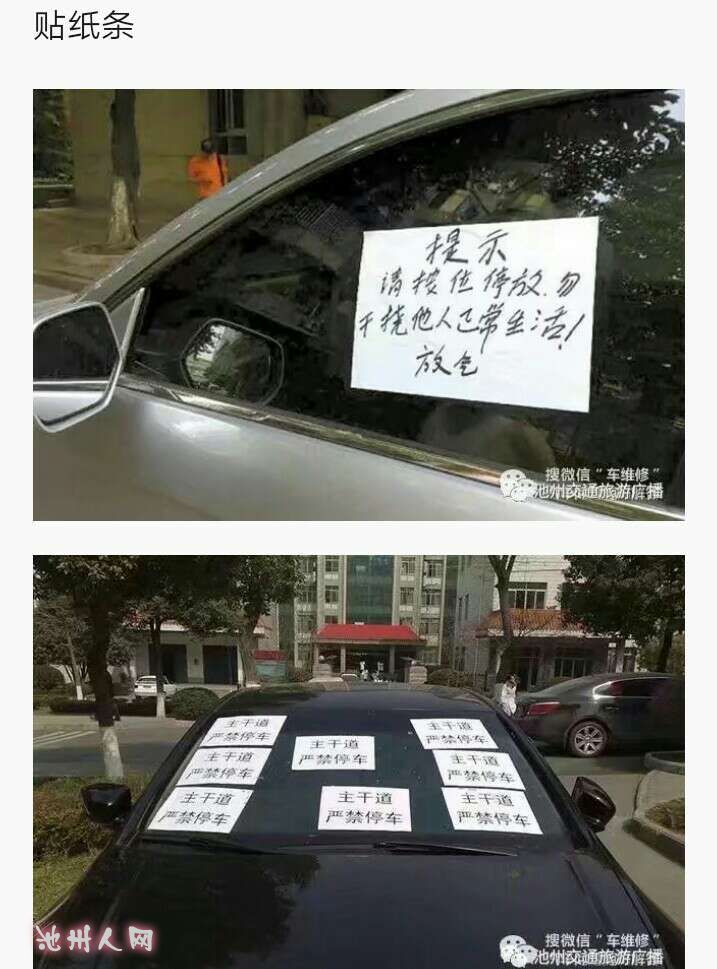 贴纸条
提示
请按位停放.勿
干挠他人正常生活!
放仓
搜微信“车维修”
池州交通旅游广播
主干道
严禁停车
主干道
严禁停车
主干道
严禁停车
主干道
严禁停车
主干道
严禁停车
主干道
严禁停车
主干道
严禁停车
主干道
严禁停车
池州人网
搜微信“车维修”
池州交通旅游广播